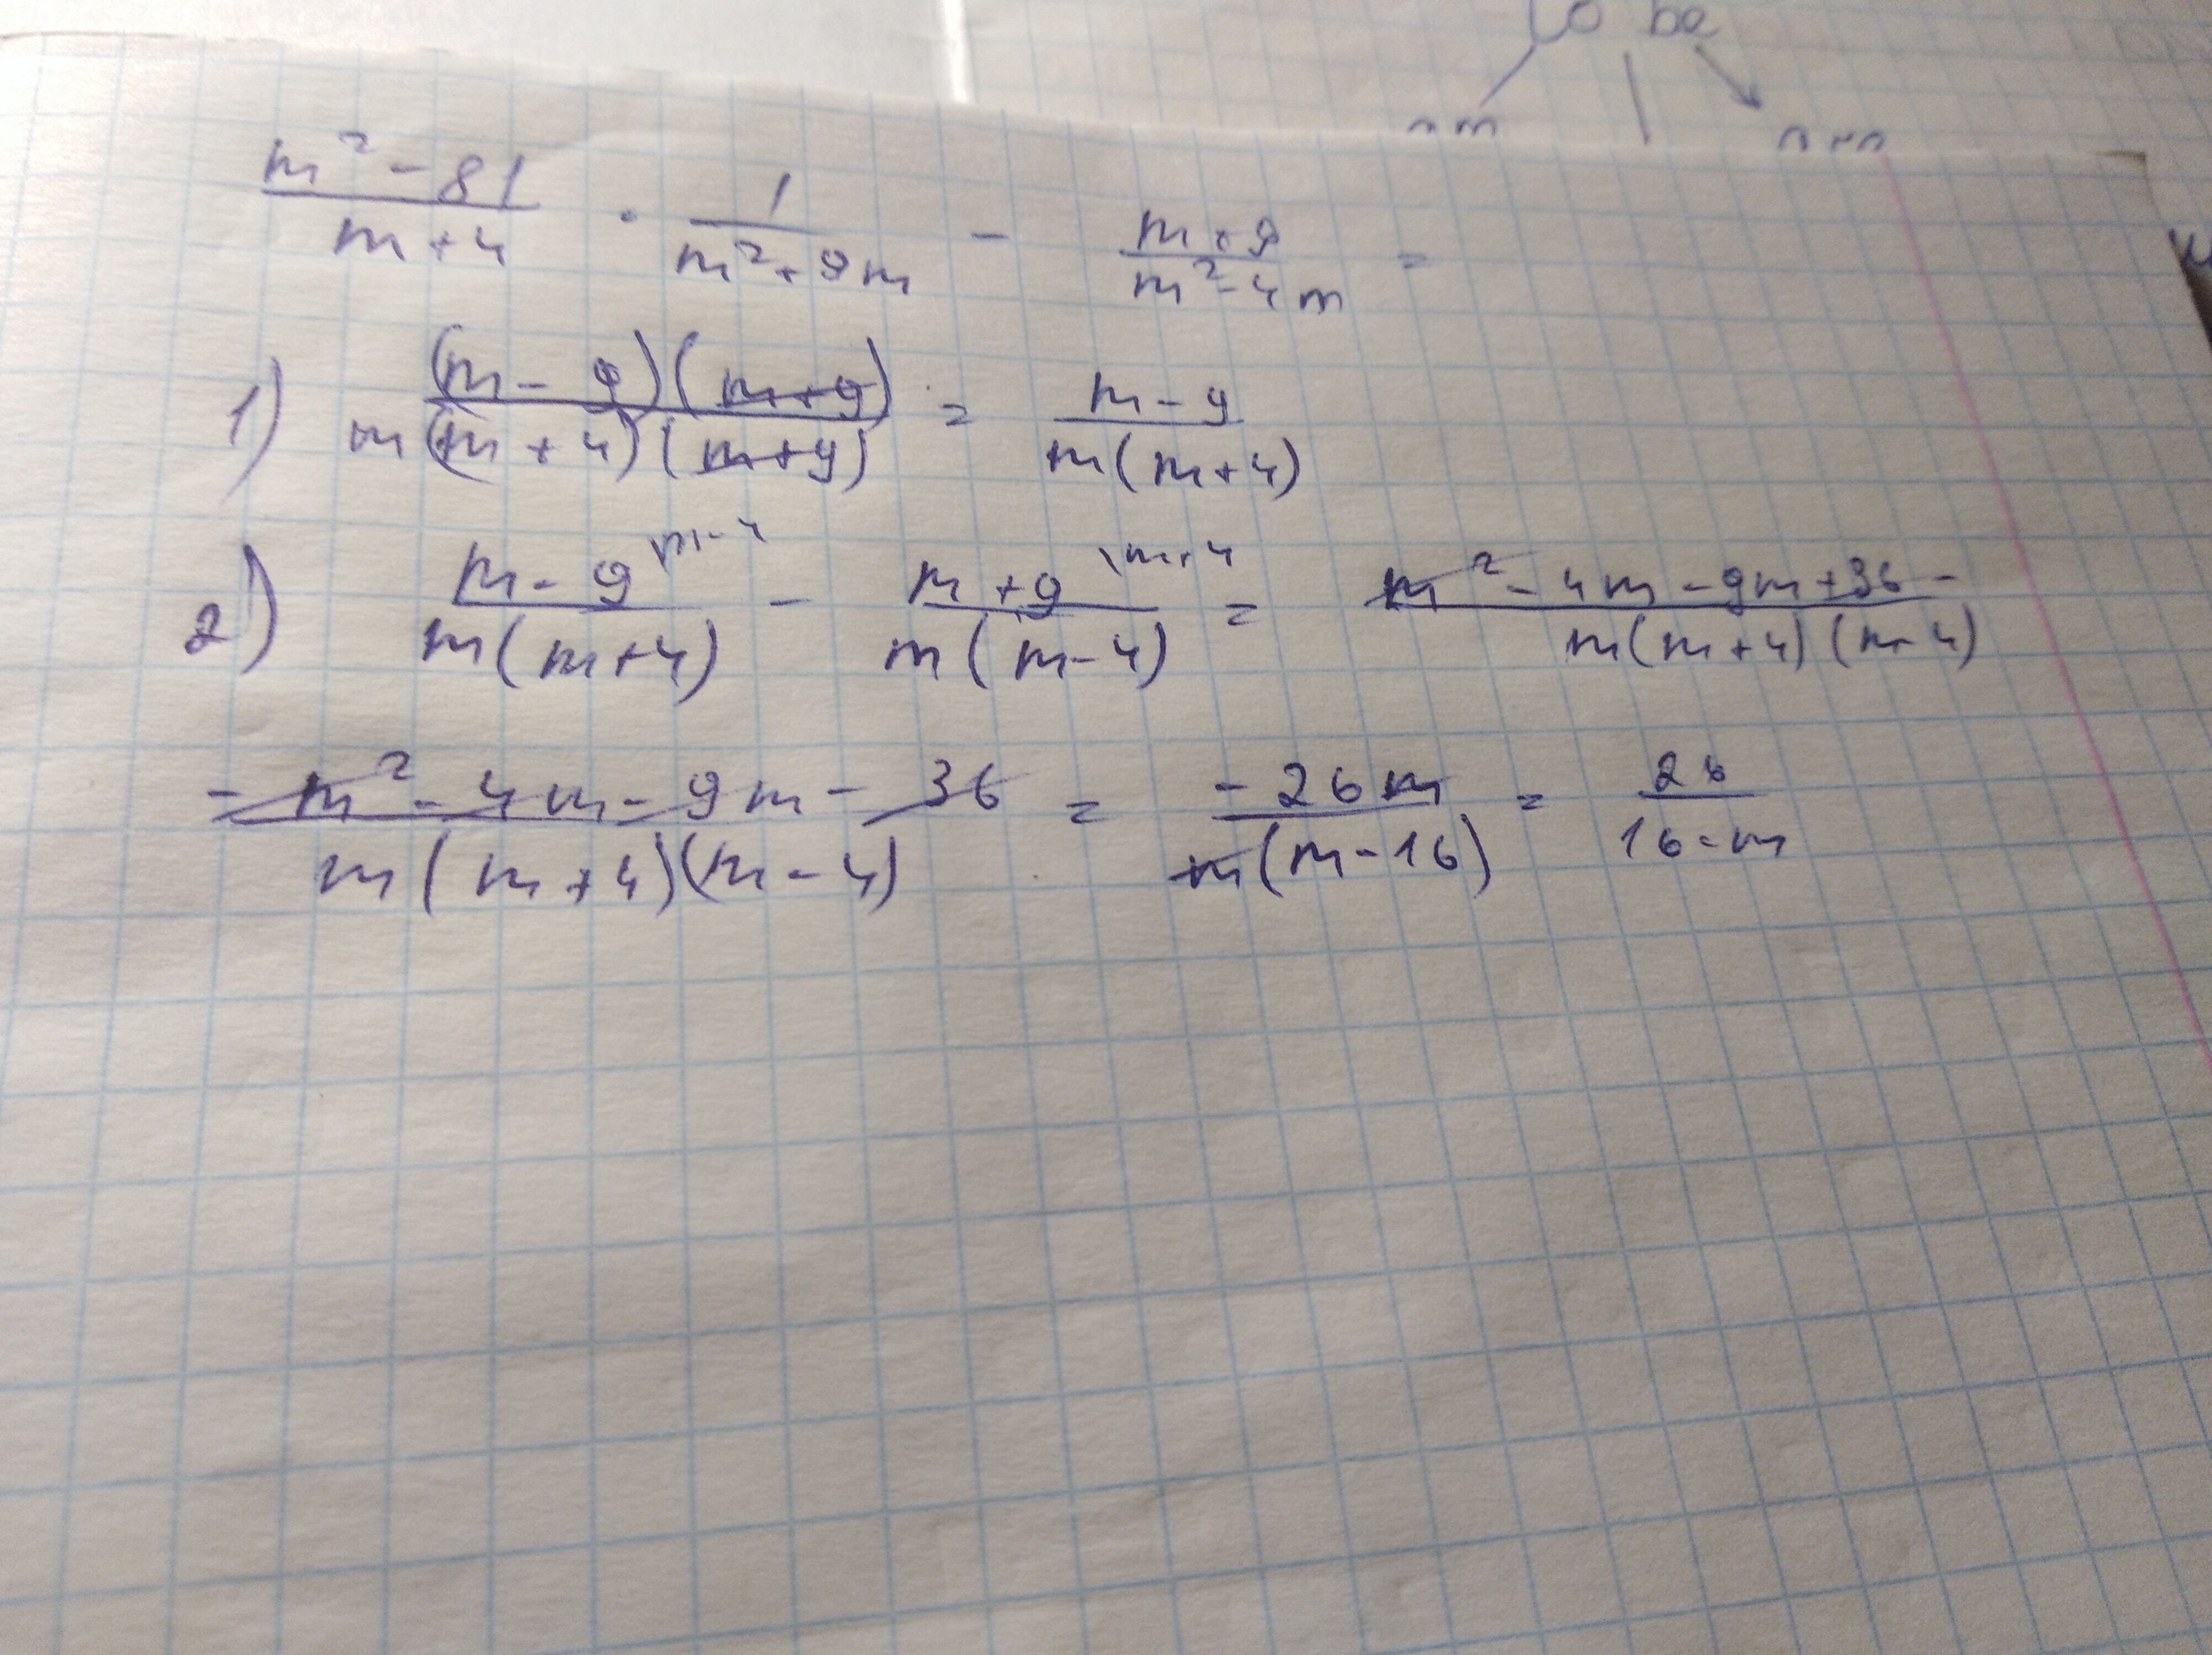 to be
(m² - 81)/(m + 4) · 1/(m² + 9m) - (m + 9)/(m² - 4m) =
1) ((m - 9)(m + 9))/(m(m + 4)(m + 9)) = (m - 9)/(m(m + 4))
2) (m - 9)/(m(m + 4)) \m - 4 - (m + 9)/(m(m - 4)) \m + 4 = (m² - 4m - 9m + 36 -)/(m(m + 4)(m - 4))
(- m² - 4m - 9m - 36)/(m(m + 4)(m - 4)) = (- 26m)/(m(m - 16)) = 26/(16 - m)